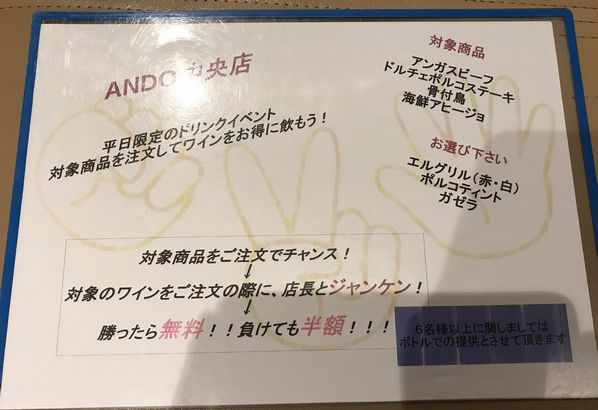 ANDO 中央店
平日限定のドリンクイベント
対象商品を注文してワインをお得に飲もう！
対象商品
アンガスビーフ
ドルチェポルコステーキ
骨付鳥
海鮮アヒージョ
お選び下さい
エルグリル（赤・白）
ポルコティント
ガゼラ
対象商品をご注文でチャンス！
↓
対象のワインをご注文の際に、店長とジャンケン！
↓
勝ったら無料！！負けても半額！！！
6名様以上に関しましては
ボトルでの提供とさせて頂きます